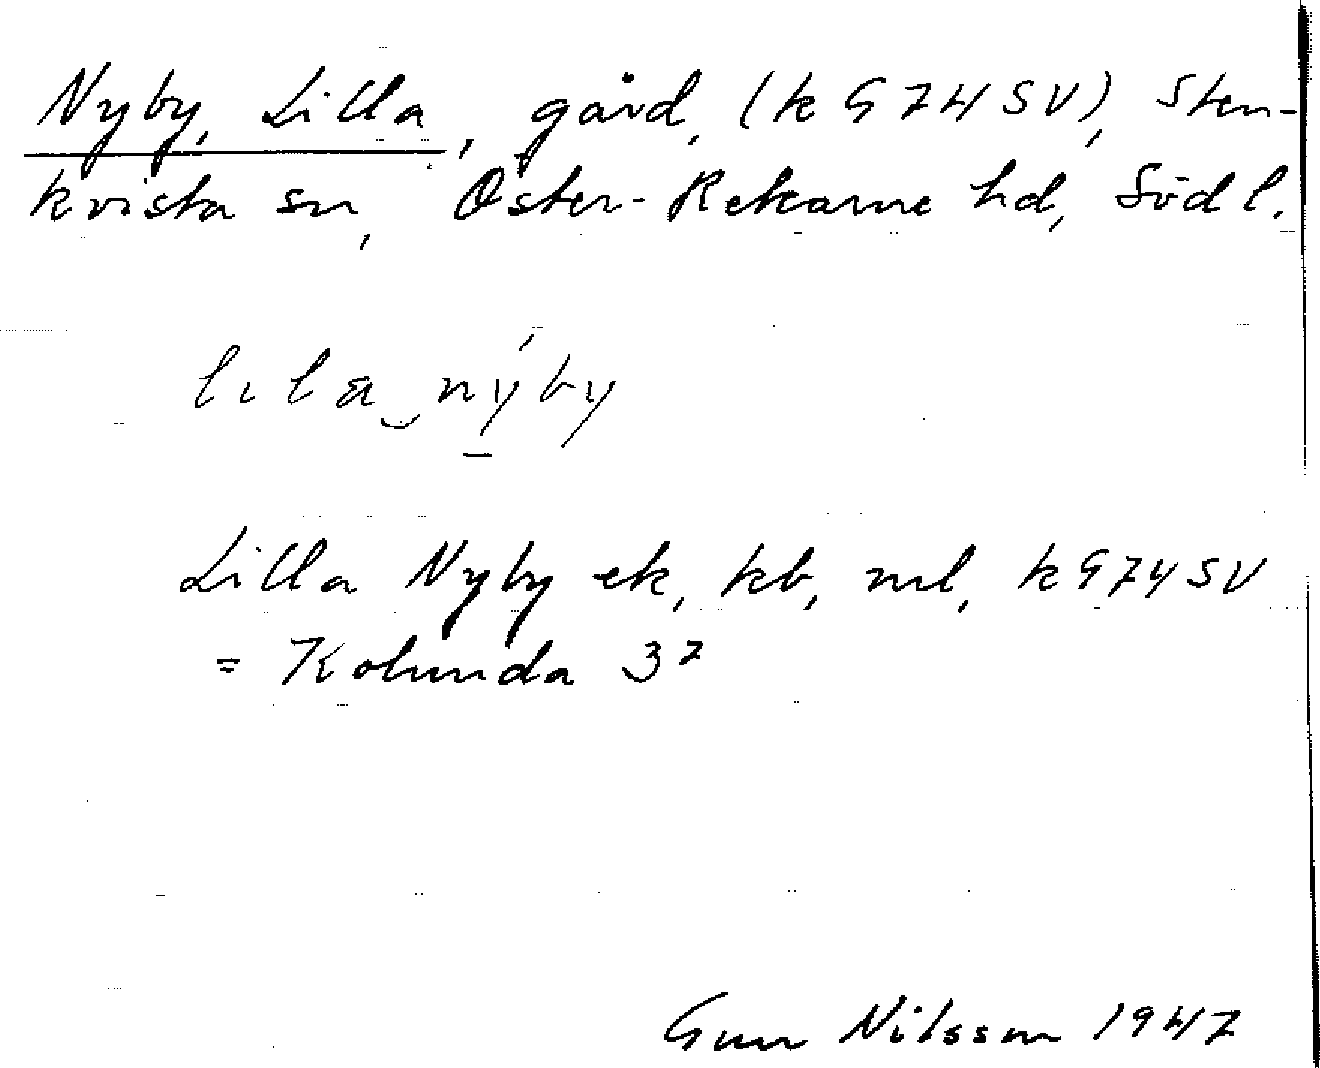 Nyby, Lilla, gård, (k G 74 SV), Sten-
kvista sn, Öster-Rekarne hd, Södl.
lila nýby
Lilla Nyby ek, kb, ml, k G 74 SV
= Kolunda 3²
Gun Nilsson 1947